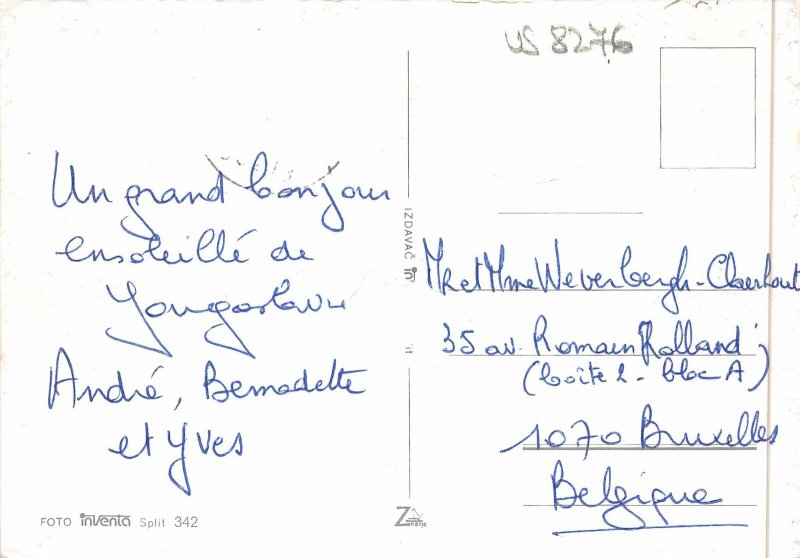 US 8276
Un grand bonjour
ensoleillé de
Yougoslavie
André, Bernadette
et Yves
FOTO inventa Split 342
IZDAVAČ
Mr et Mme Weverbergh-Claerhout
35 av. Romain Rolland
(boîte 2 - bloc A)
1070 Bruxelles
Belgique